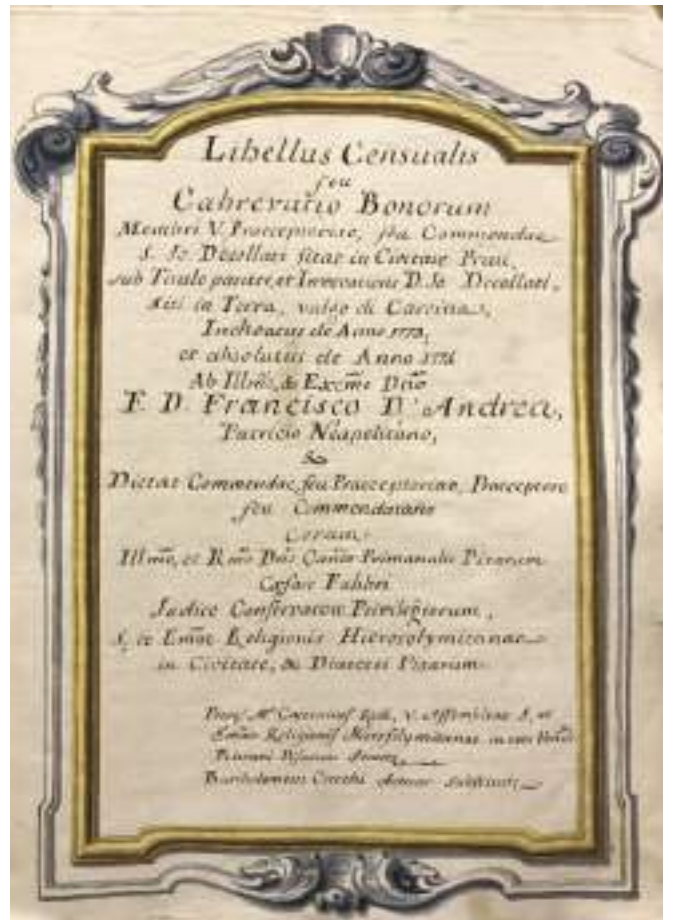 Libellus Censualis
seu
Cabrevatio Bonorum
Membri V. Praeceptoriae, seu Commendae
S. Jo. Decollati sitae in Civitate
sub Titulo pariter, et Invocatione D. Jo. Decollati,
Siti in Terra, vulgo di Cascina,
Inchoatus de Anno 1773,
et absolutus de Anno
Ab Illmo, & Excmo Dno
F. D. Francisco D'Andrea,
Patricio Neapolitano,
&
Dictae Commendae, seu Praeceptoriae, Praeceptore
seu Commendatario
Coram
Illmo, et Rmo Dno Canco Primatiali Pisarum
Cesare Fabbri
Judice Conservatore Privilegiorum,
S, et Emae Religionis Hierosolymitanae
in Civitate, & Diaecesi Pisarum
V. Assembleae S, et
Emae Religionis Hierosolymitanae in
Prioratu Pisarum
Bartholomeus Cecchi